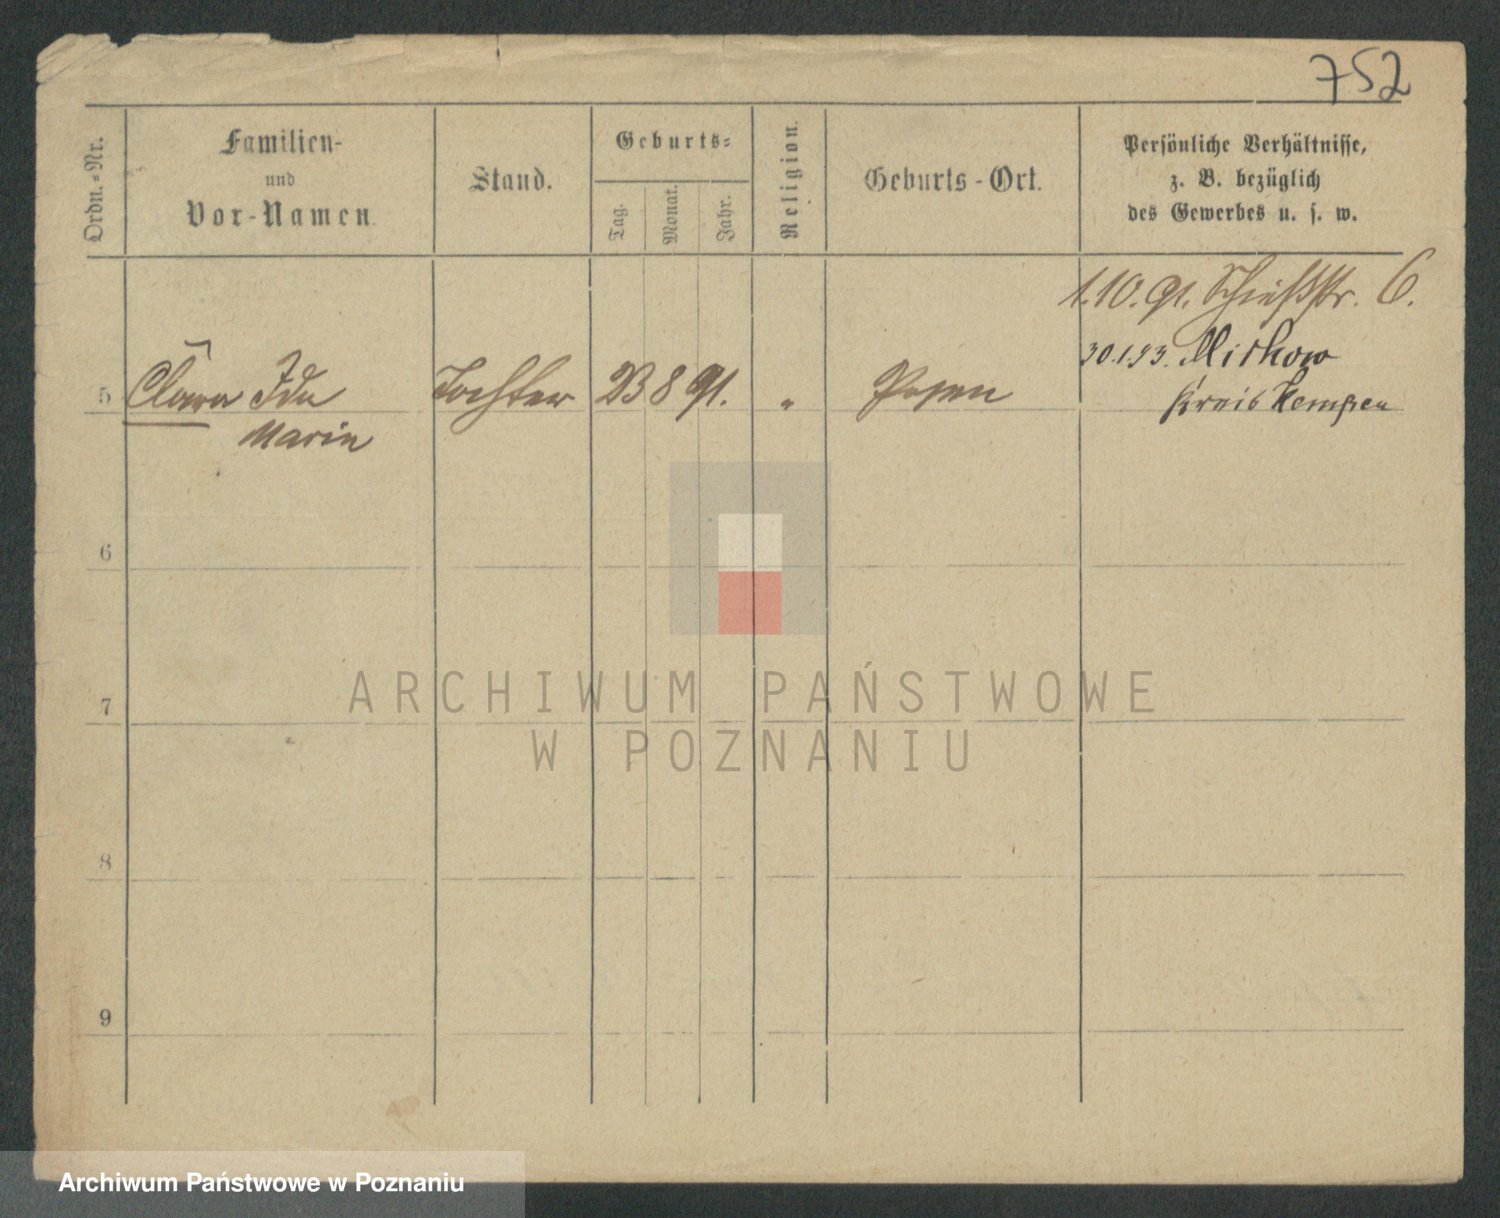 752
Ordn.-Nr.
Familien-
und
Vor-Namen.
Stand.
Geburts-
Tag.
Monat.
Jahr.
Religion.
Geburts-Ort.
Persönliche Verhältnisse,
z. B. bezüglich
des Gewerbes u. s. w.
1.10.91. Schießstr. 6.
30.1.93. Mirkow
Kreis Kempen
5 Clara Ida Tochter 23 8 91. " Posen
Marie
6
7
8
9
ARCHIWUM PAŃSTWOWE
W POZNANIU
Archiwum Państwowe w Poznaniu